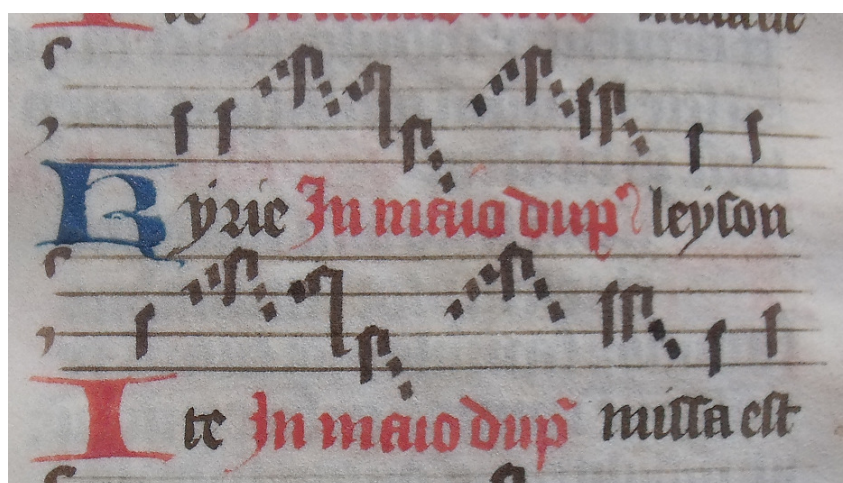 Kyrie In maio dup leyson
Ite In maio dup missa est